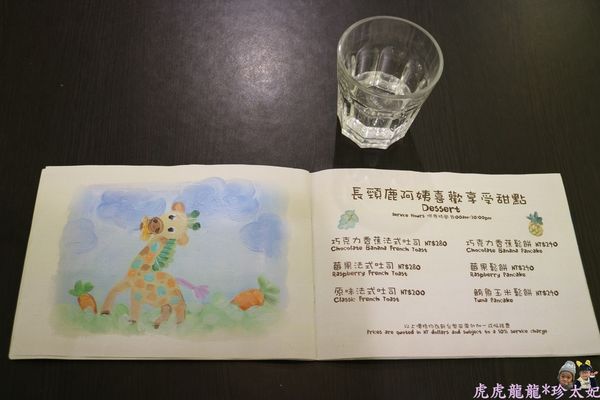 長頸鹿阿姨喜歡享受甜點
Dessert
Service Hours 供應時間 11:00am-10:00pm
巧克力香蕉法式吐司 NT$280
Chocolate Banana French Toast
莓果法式吐司 NT$280
Raspberry French Toast
原味法式吐司 NT$200
Classic French Toast
巧克力香蕉鬆餅 NT$290
Chocolate Banana Pancake
莓果鬆餅 NT$290
Raspberry Pancake
鮪魚玉米鬆餅 NT$290
Tuna Pancake
以上價格均為新台幣並需外加一成服務費
Prices are quoted in NT dollars and subject to a 10% service charge
虎虎龍龍*珍太妃